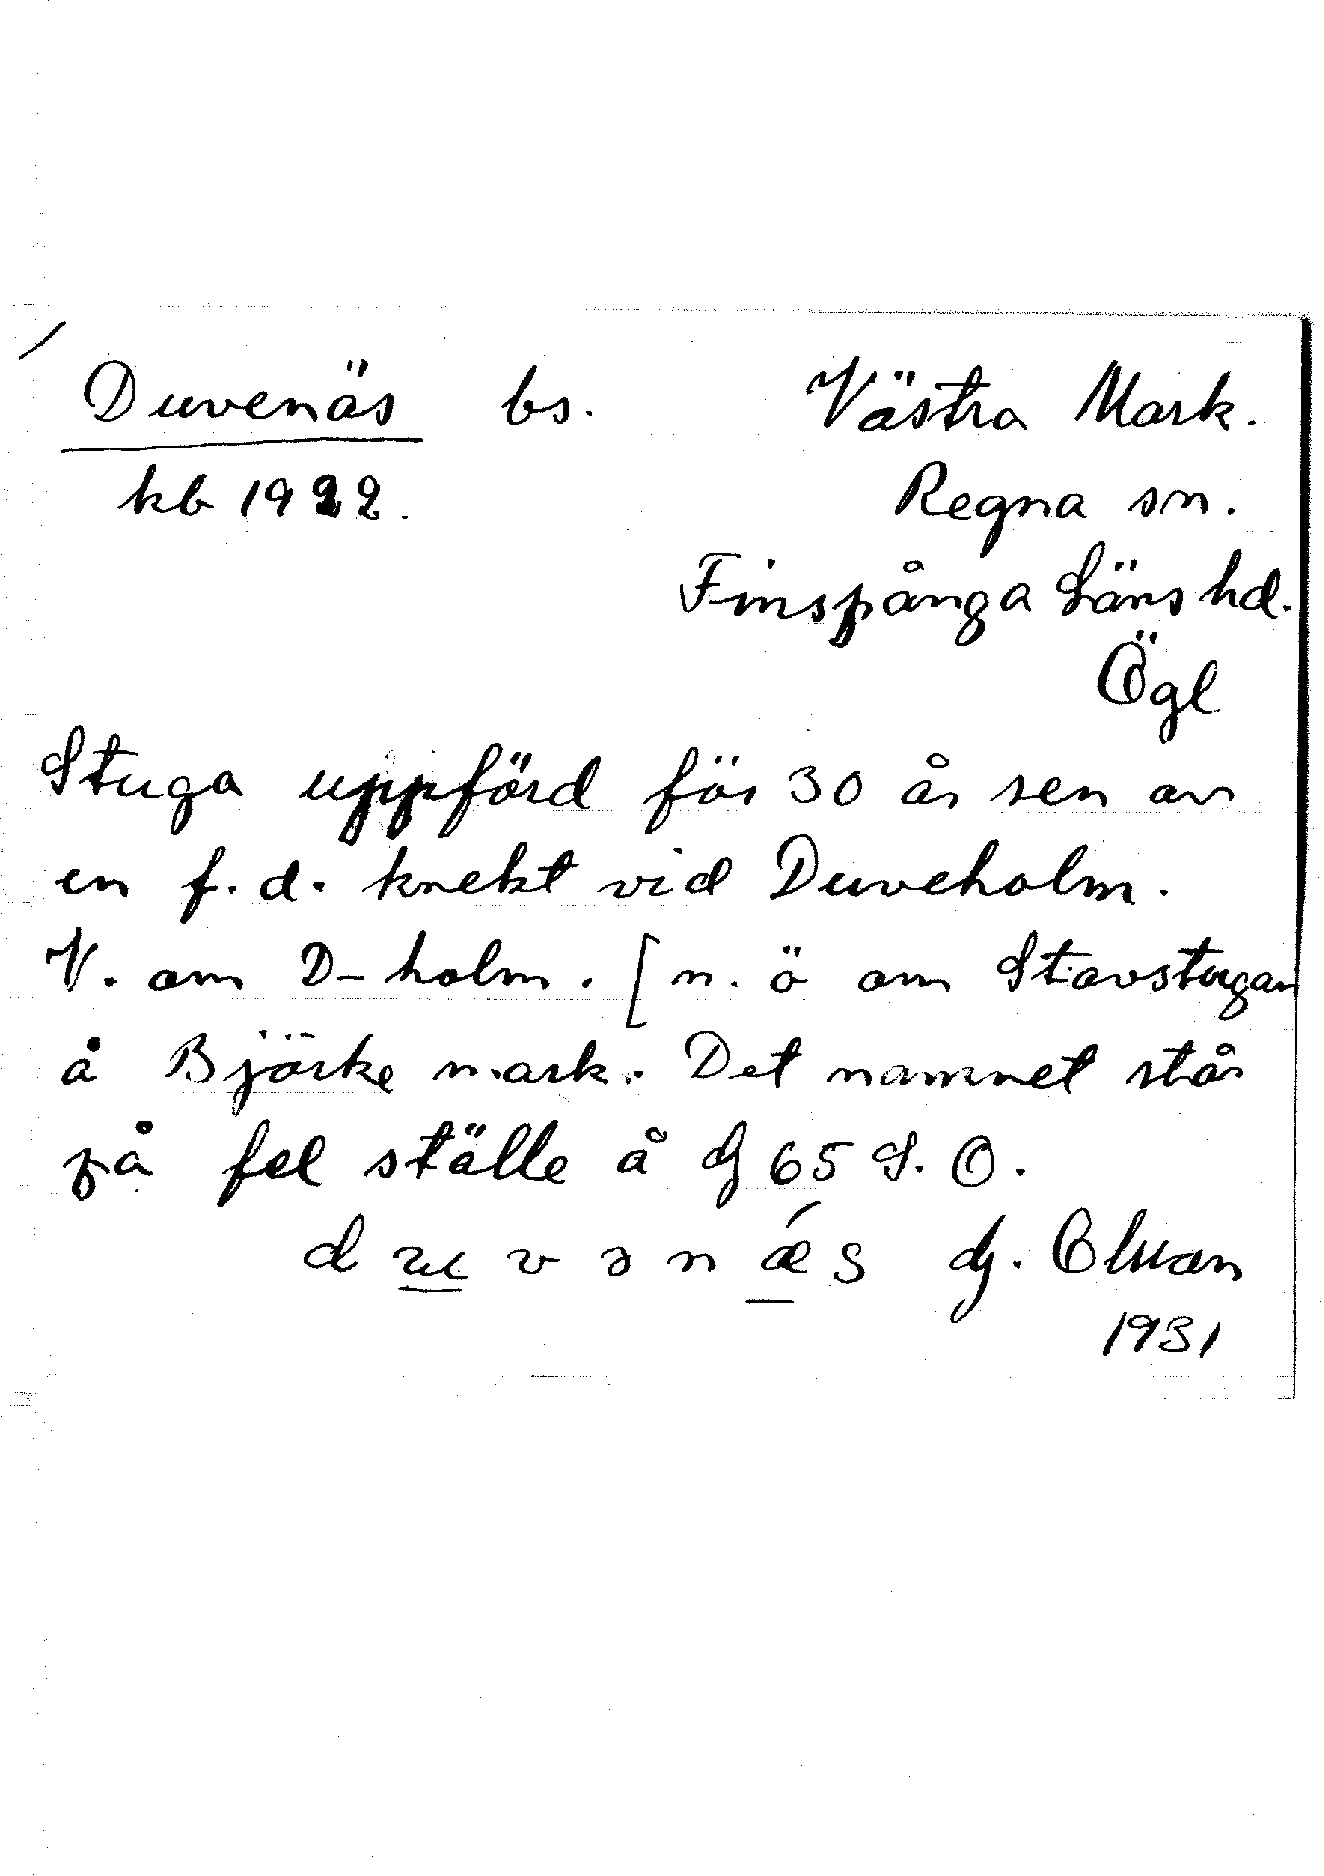 Duvenäs bs. Västra Mark.
kb 1922. Regna sn.
Finspånga Läns hd.
Ögl
Stuga uppförd för 30 år sen av
en f.d. knekt vid Duveholm.
V. om D-holm. [n. ö om Stavstugan
å Björke mark. Det namnet står
på fel ställe å G 65 S.O.
d u v ə n ǽ s G. Elman
1931